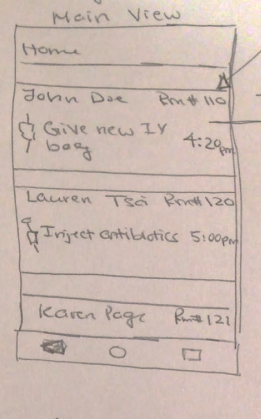 Main View
Home
John Doe Rm# 110
Give new IV
bag 4:20pm
Lauren Tsai Rm#120
Inject antibiotics 5:00pm
Karen Page Rm#121